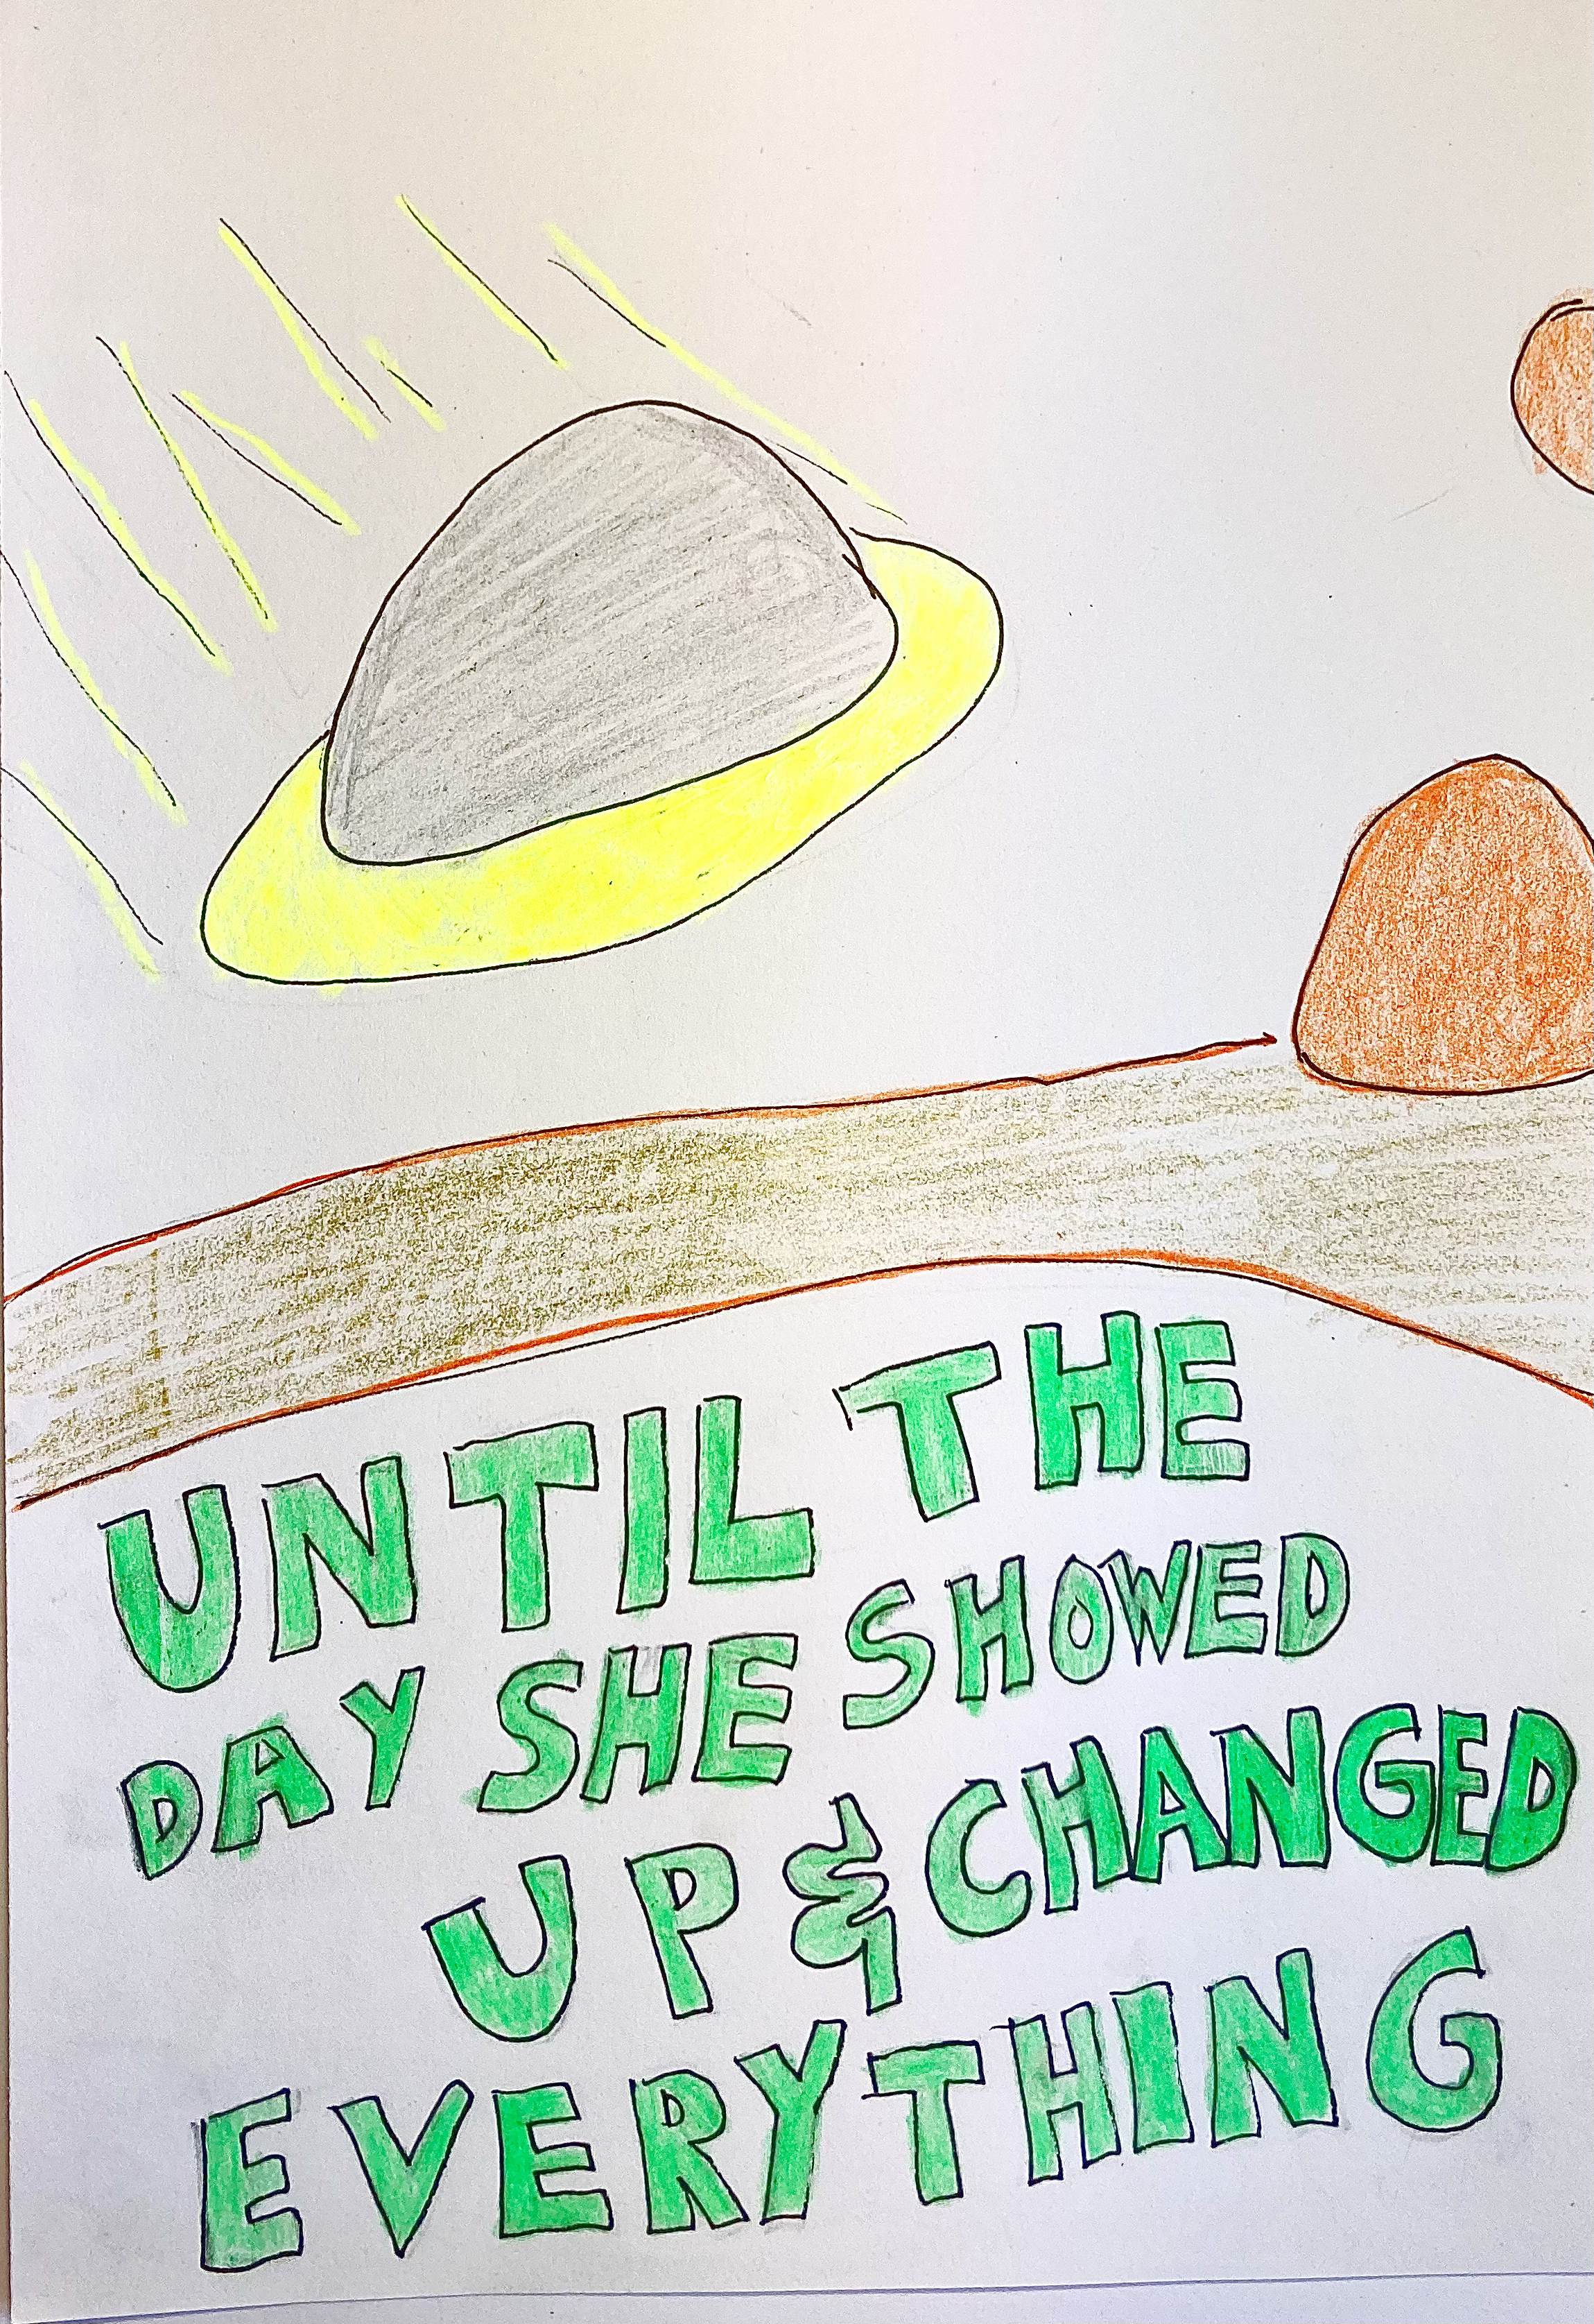 UNTIL THE
DAY SHE SHOWED
UP & CHANGED
EVERYTHING